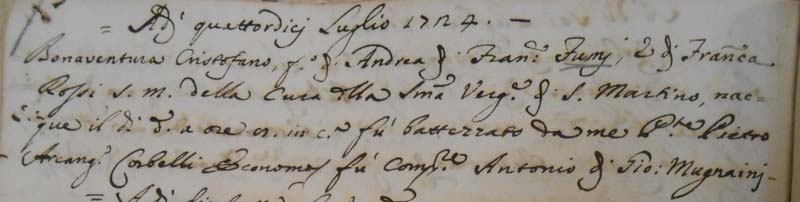 = Adj quattordicj Luglio 1724. —
Bonaventura Cristofano, f.o di Andrea di Fran.o Fumj, e di Fran.ca
Rossi s. m. della Cura della Sma Verg.e di S. Martino, nac=
que il di d. a ore in c.a fù battezzato da me P.te Pietro
Arcang.o Corbelli Economo, fù Comp.re Antonio di Gio: Mugnainj-